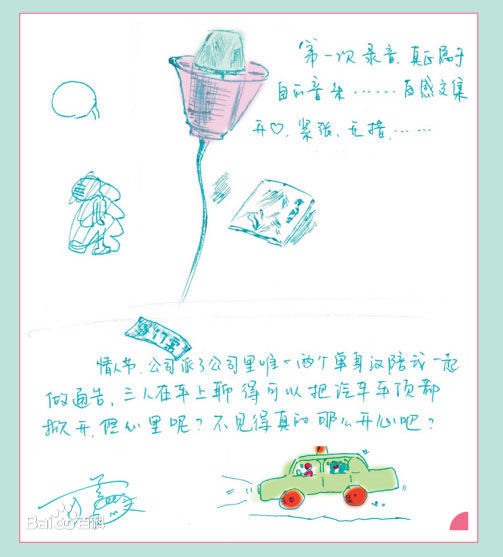 第一次录音，真正属于
自己音乐……百感交集
开♡，紧张，无措，……
情人节，公司派了公司里唯一两个单身汉陪我一起
做通告，三人在车上聊得可以把汽车车顶都
掀开，但心里呢？不见得真的那么开心吧？
Bai百科